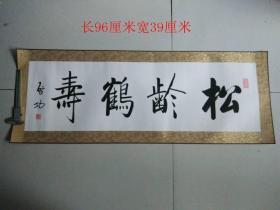 长96厘米宽39厘米
松龄鹤寿
启功